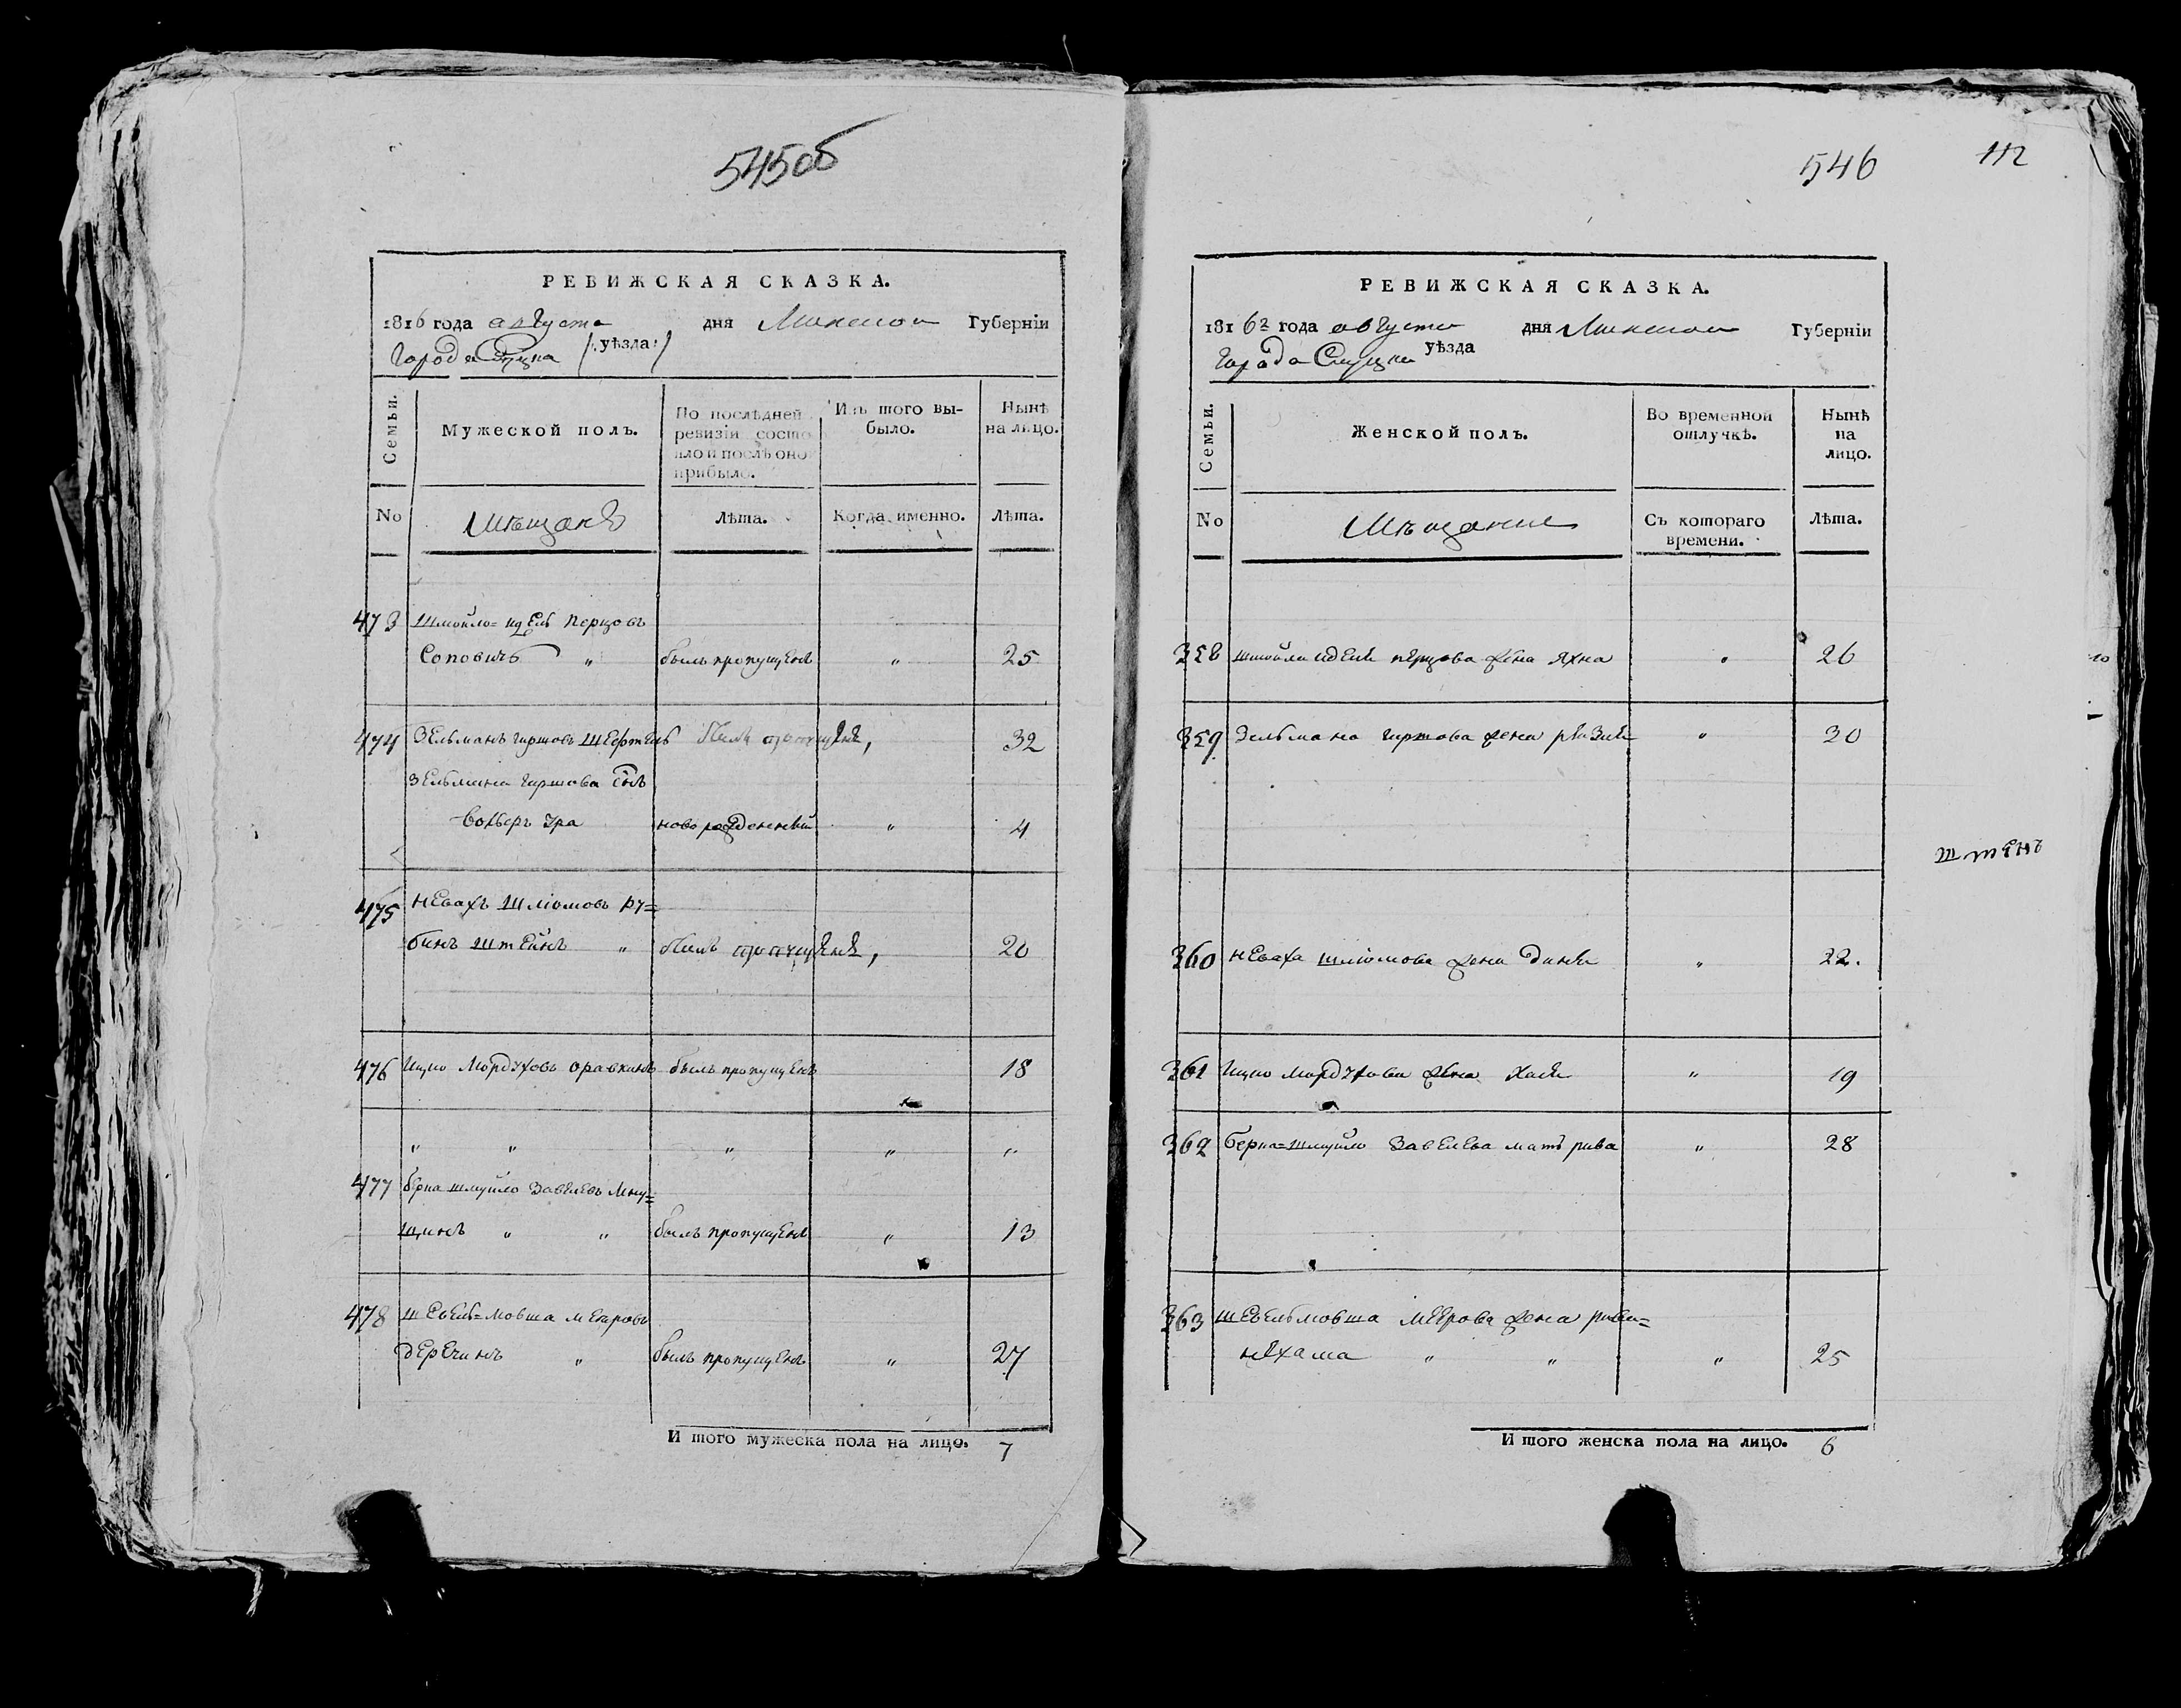 545об
РЕВИЖСКАЯ СКАЗКА.
1816 года августа дня Минской Губерніи
города Слуцка /:уѣзда:/
Семьи.
Мужеской полъ.
По послѣдней ревизіи состояло и послѣ оной прибыло.
Изъ того выбыло.
Нынѣ на лицо.
No
Мѣщанѣ
Лѣта.
Когда именно.
Лѣта.
473 Шмойло=идель Перцовъ
Соповичъ " былъ пропущенъ " 25
474 Зельманъ гиршовъ былъ пропущенъ, 32
Зельмана гиршова снъ
новорожденный " 4
475 Невахъ Шліомовъ Ру=
бинъ штейнъ " былъ пропущенъ, 20
476 Ицко Мордуховъ Оравкинъ былъ пропущенъ 18
" " " " "
477 берка шмуйло Завелевъ Мну=
щинъ " " былъ пропущенъ " 13
478 Шевель=мовша меировъ
деречинъ " былъ пропущенъ " 27
И того мужеска пола на лицо. 7
546 112
РЕВИЖСКАЯ СКАЗКА.
1816го года августа дня Минской Губерніи
города Слуцка уѣзда
Семьи.
Женской полъ.
Во временной отлучкѣ.
Нынѣ на лицо.
No
Мѣщанки
Съ котораго времени.
Лѣта.
358 шмойла иделя перцова жена Яхна " 26
359 Зельмана гиршова жена " 30
штенъ
360 Неваха шліомова жена диня " 22.
361 Ицко мордухова жена Хася " 19
362 берка=шмуйло Завелева мать рива " 28
363 шевельмовша меерова жена риви=
нѣхама " " " 25
И того женска пола на лицо. 6